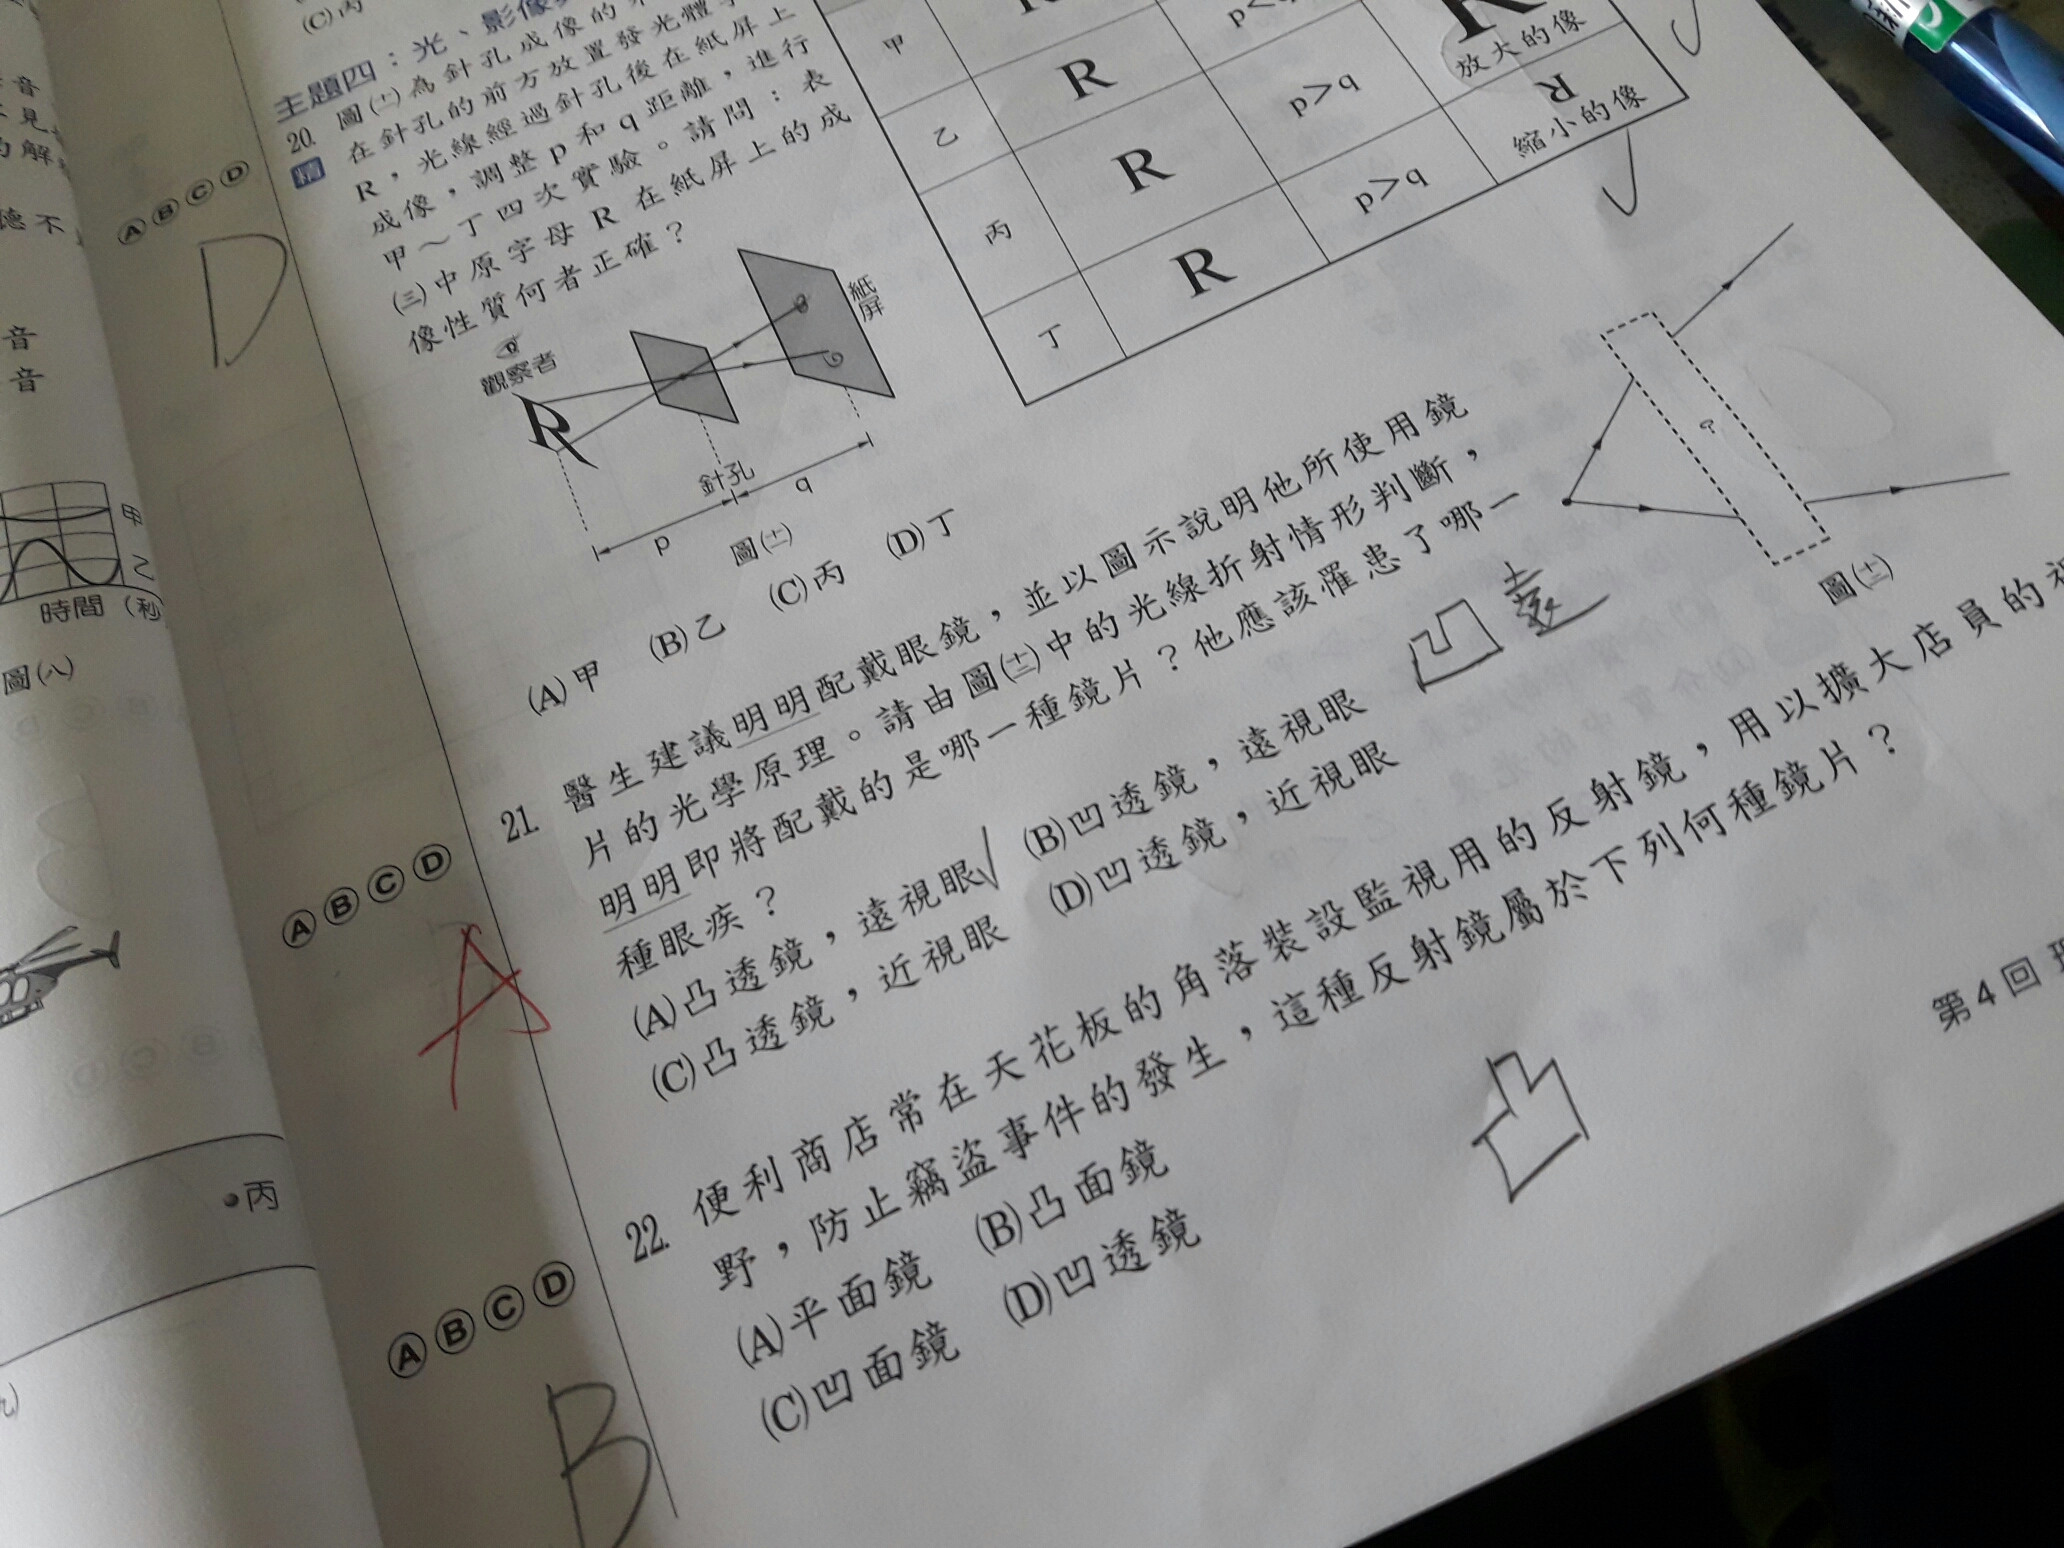 (C)丙
主題四：光、影像
20. 圖(十一)為針孔成像的
精
在針孔的前方放置發光體
R，光線經過針孔後在紙屏上
成像，調整 p 和 q 距離，進行
甲～丁四次實驗。請問：表
(三)中原字母 R 在紙屏上的成
像性質何者正確？
觀察者
R
紙屏
針孔
p
q
圖(十一)
(A)甲 (B)乙 (C)丙 (D)丁
甲
R
放大的像
乙 R p>q
R
縮小的像
丙 R p>q
丁 R
ⒶⒷⒸⒹ
D
21. 醫生建議明明配戴眼鏡，並以圖示說明他所使用鏡
片的光學原理。請由圖(十二)中的光線折射情形判斷，
明明即將配戴的是哪一種鏡片？他應該罹患了哪一
種眼疾？
(A)凸透鏡，遠視眼 (B)凹透鏡，遠視眼
(C)凸透鏡，近視眼 (D)凹透鏡，近視眼
?
圖(十二)
凹 遠
ⒶⒷⒸⒹ
A
22. 便利商店常在天花板的角落裝設監視用的反射鏡，用以擴大店員的視
野，防止竊盜事件的發生，這種反射鏡屬於下列何種鏡片？
(A)平面鏡 (B)凸面鏡
(C)凹面鏡 (D)凹透鏡
凸
ⒶⒷⒸⒹ
B
第4回
音
音
甲
乙
時間（秒
圖(八)
丙